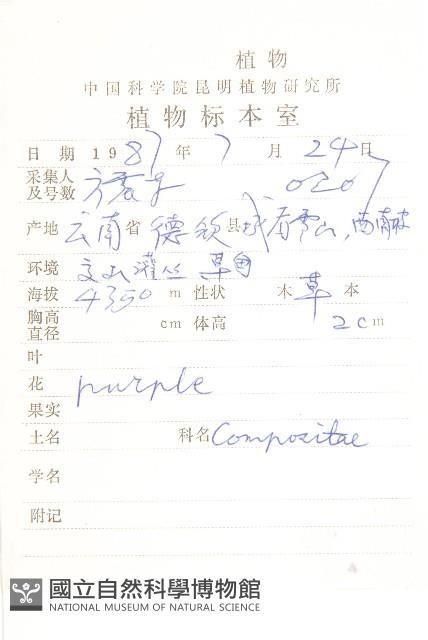 植物
中国科学院昆明植物研究所
植物标本室
日 期 1987年 7 月 24日
采集人
及号数 0207
产地 云南省 德钦县 雪山, 西南坡
环境 灌丛 草甸
海拔 4350 m 性状 木 草 本
胸高
直径 cm 体高 2cm
叶
花 purple
果实
土名 科名 Compositae
学名
附记
國立自然科學博物館
NATIONAL MUSEUM OF NATURAL SCIENCE